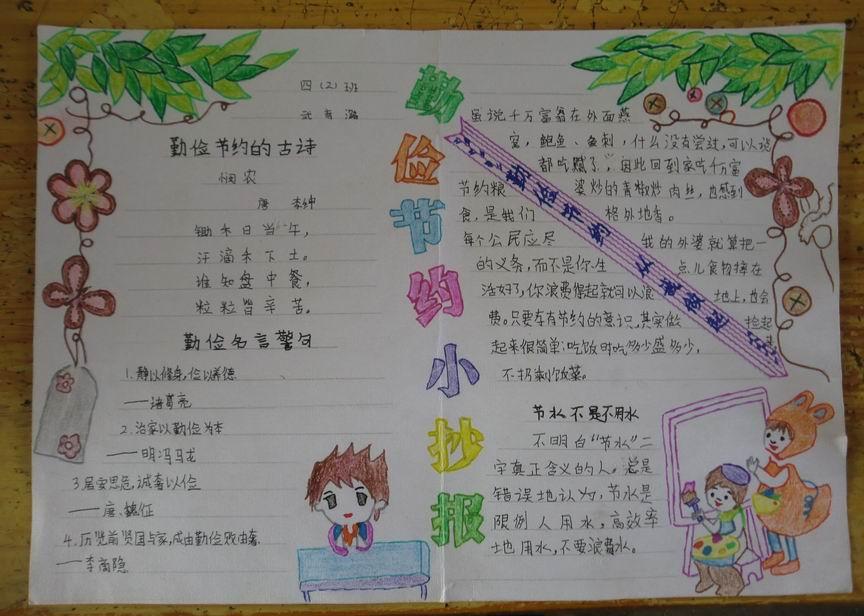 四（2）班
武 🄰 潞
勤俭节约的古诗
悯农
唐 李绅
锄禾日当午，
汗滴禾下土。
谁知盘中餐，
粒粒皆辛苦。
勤俭名言警句
1.静以修身，俭以养德
——诸葛亮
2.治家以勤俭为本
——明冯马龙
3.居安思危，诫奢以俭
——唐、魏征
4.历览前贤国与家，成由勤俭败由奢
——李商隐
勤俭节约小抄报
虽说千万富翁在外面燕
窝，鲍鱼、鱼刺，什么没有尝过，可以说
都吃腻了，因此回到家吃千万富
婆炒的青椒炒肉丝，也感到
格外地香。
我的外婆就算把一
点儿食物掉在
地上，也会
捡起
来
勤俭节约 从我做起
节约粮
食，是我们
每个公民应尽
的义务，而不是你生
活好了，你浪费得起就可以浪
费。只要存有节约的意识，其实做
起来很简单：吃饭时吃多少盛多少，
不扔剩饭菜。
节水不是不用水
不明白“节水”二
字真正含义的人。总是
错误地认为，节水是
限制人用水，高效率
地用水，不要浪费水。